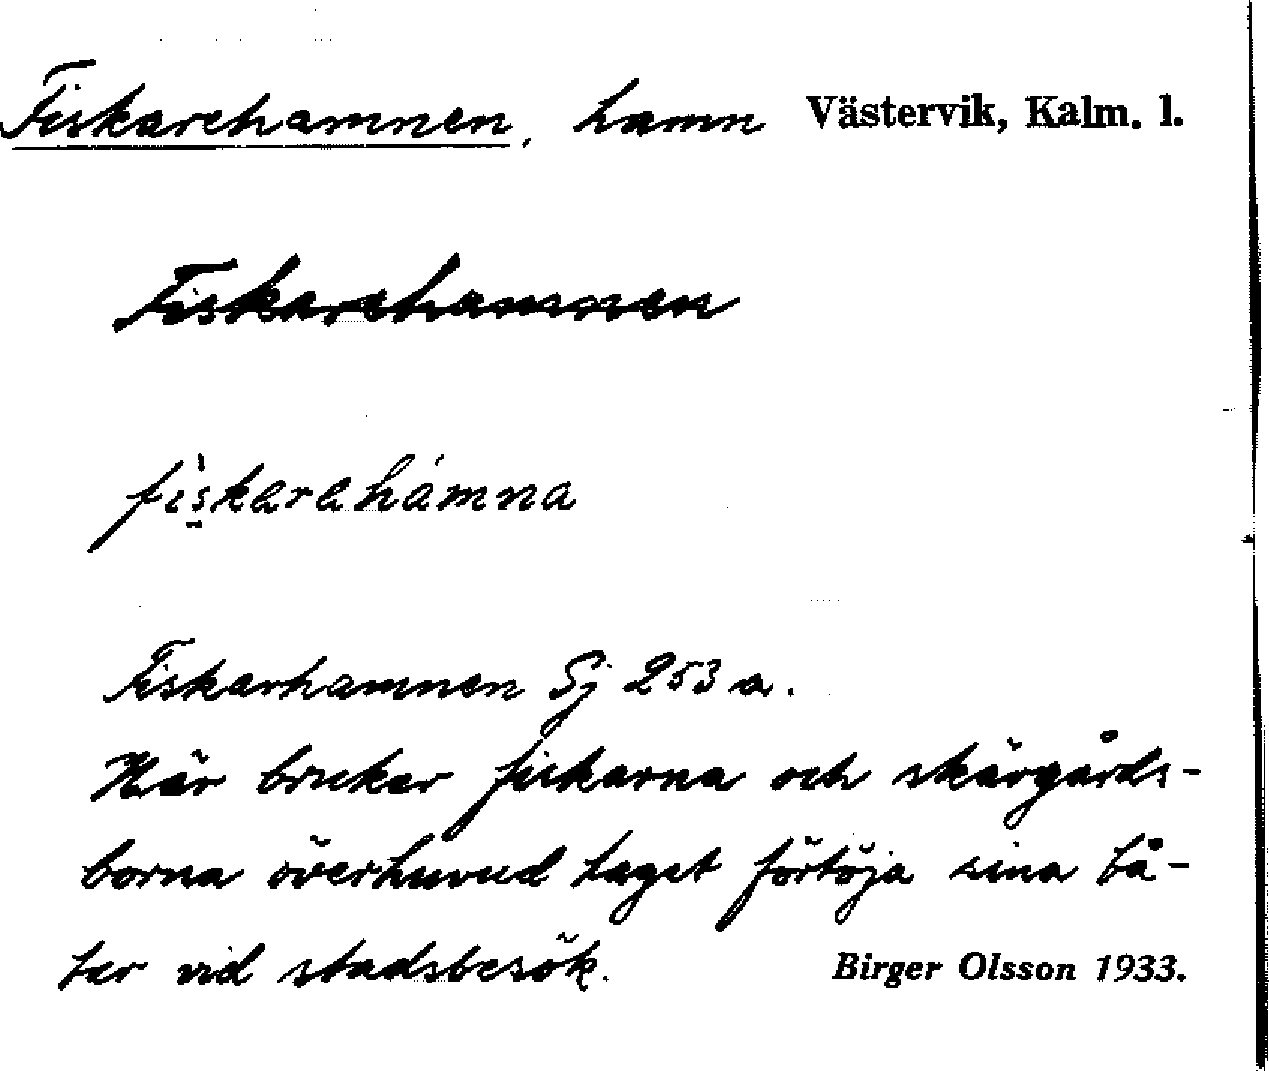 Fiskarehamnen, hamn Västervik, Kalm. l.
Fiskarehamnen
fìskarahámna
Fiskarhamnen Sj 253 a.
Här bruker fiskarna och skärgårds-
borna överhuvud taget förtöja sina bå-
tar vid stadsbesök. Birger Olsson 1933.